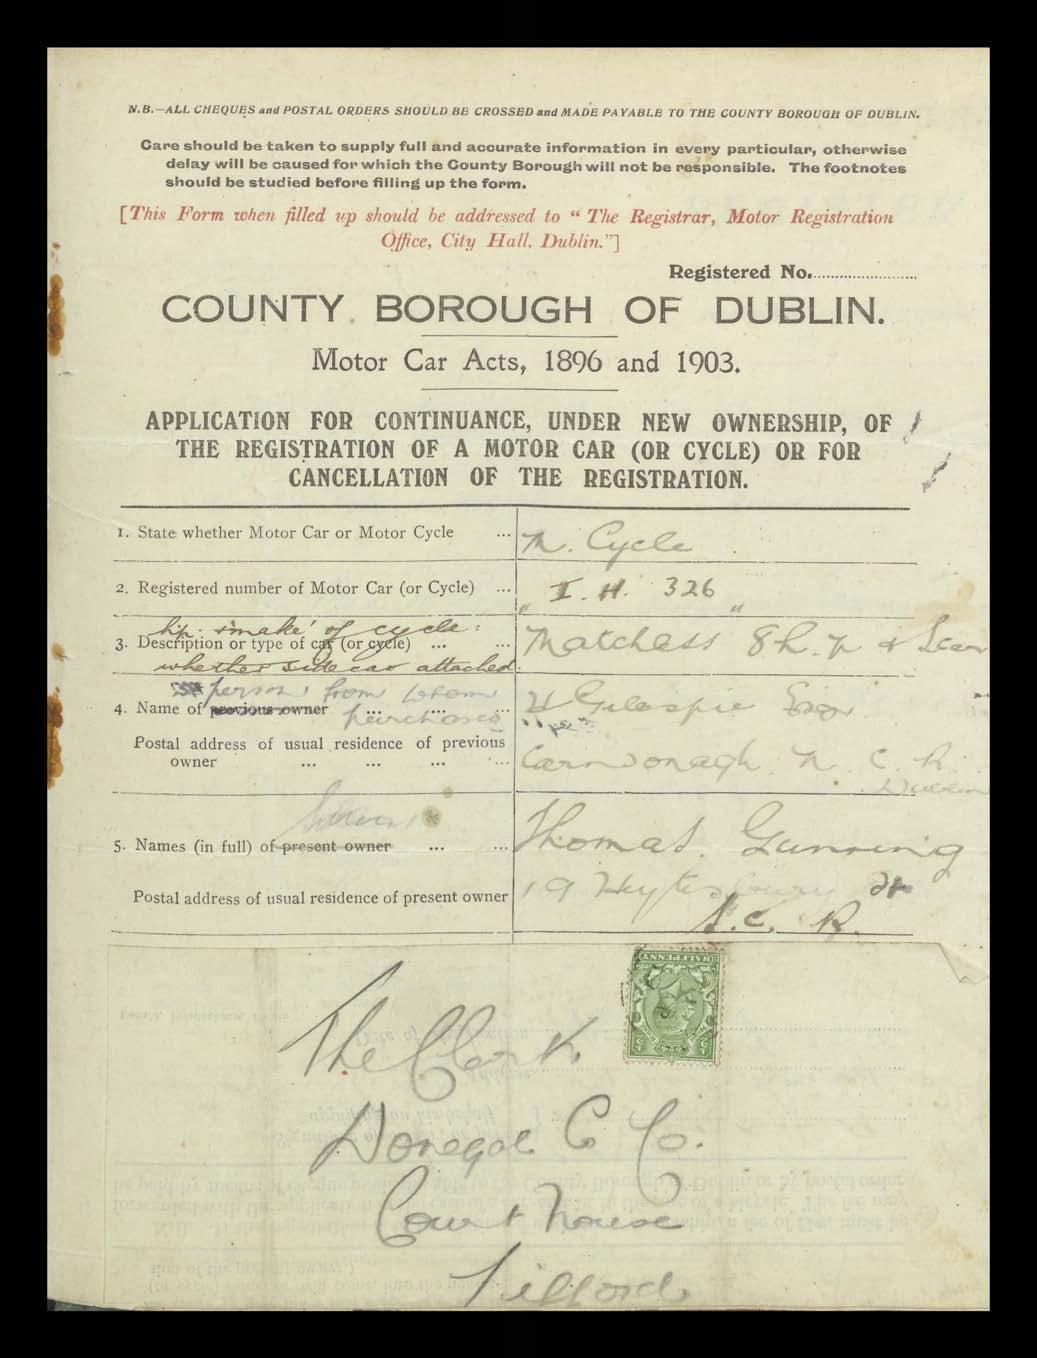 N.B.—ALL CHEQUES and POSTAL ORDERS SHOULD BE CROSSED and MADE PAYABLE TO THE COUNTY BOROUGH OF DUBLIN.
Care should be taken to supply full and accurate information in every particular, otherwise
delay will be caused for which the County Borough will not be responsible. The footnotes
should be studied before filling up the form.
[This Form when filled up should be addressed to “ The Registrar, Motor Registration
Office, City Hall, Dublin.”]
Registered No.........................
COUNTY BOROUGH OF DUBLIN.
Motor Car Acts, 1896 and 1903.
APPLICATION FOR CONTINUANCE, UNDER NEW OWNERSHIP, OF
THE REGISTRATION OF A MOTOR CAR (OR CYCLE) OR FOR
CANCELLATION OF THE REGISTRATION.
1. State whether Motor Car or Motor Cycle ... M. Cycle
2. Registered number of Motor Car (or Cycle) ... " I. H. 326 "
h.p. & 'make' of cycle:
3. Description or type of car (or cycle) ... ... Matchless 8 h.p & Scar
whether side car attached.
person from whom
4. Name of previous owner ... ... ... H Gilespie Esqr
purchased
Postal address of usual residence of previous
owner ... ... ... ... Carndonagh N. C. R.
Dublin
5. Names (in full) of present owner ... ... Thomas Gunning
Postal address of usual residence of present owner 19 Heytesbury St
S. C. R.
HALFPENNY
The Clerk
Donegal C Co.
Court house
Lifford